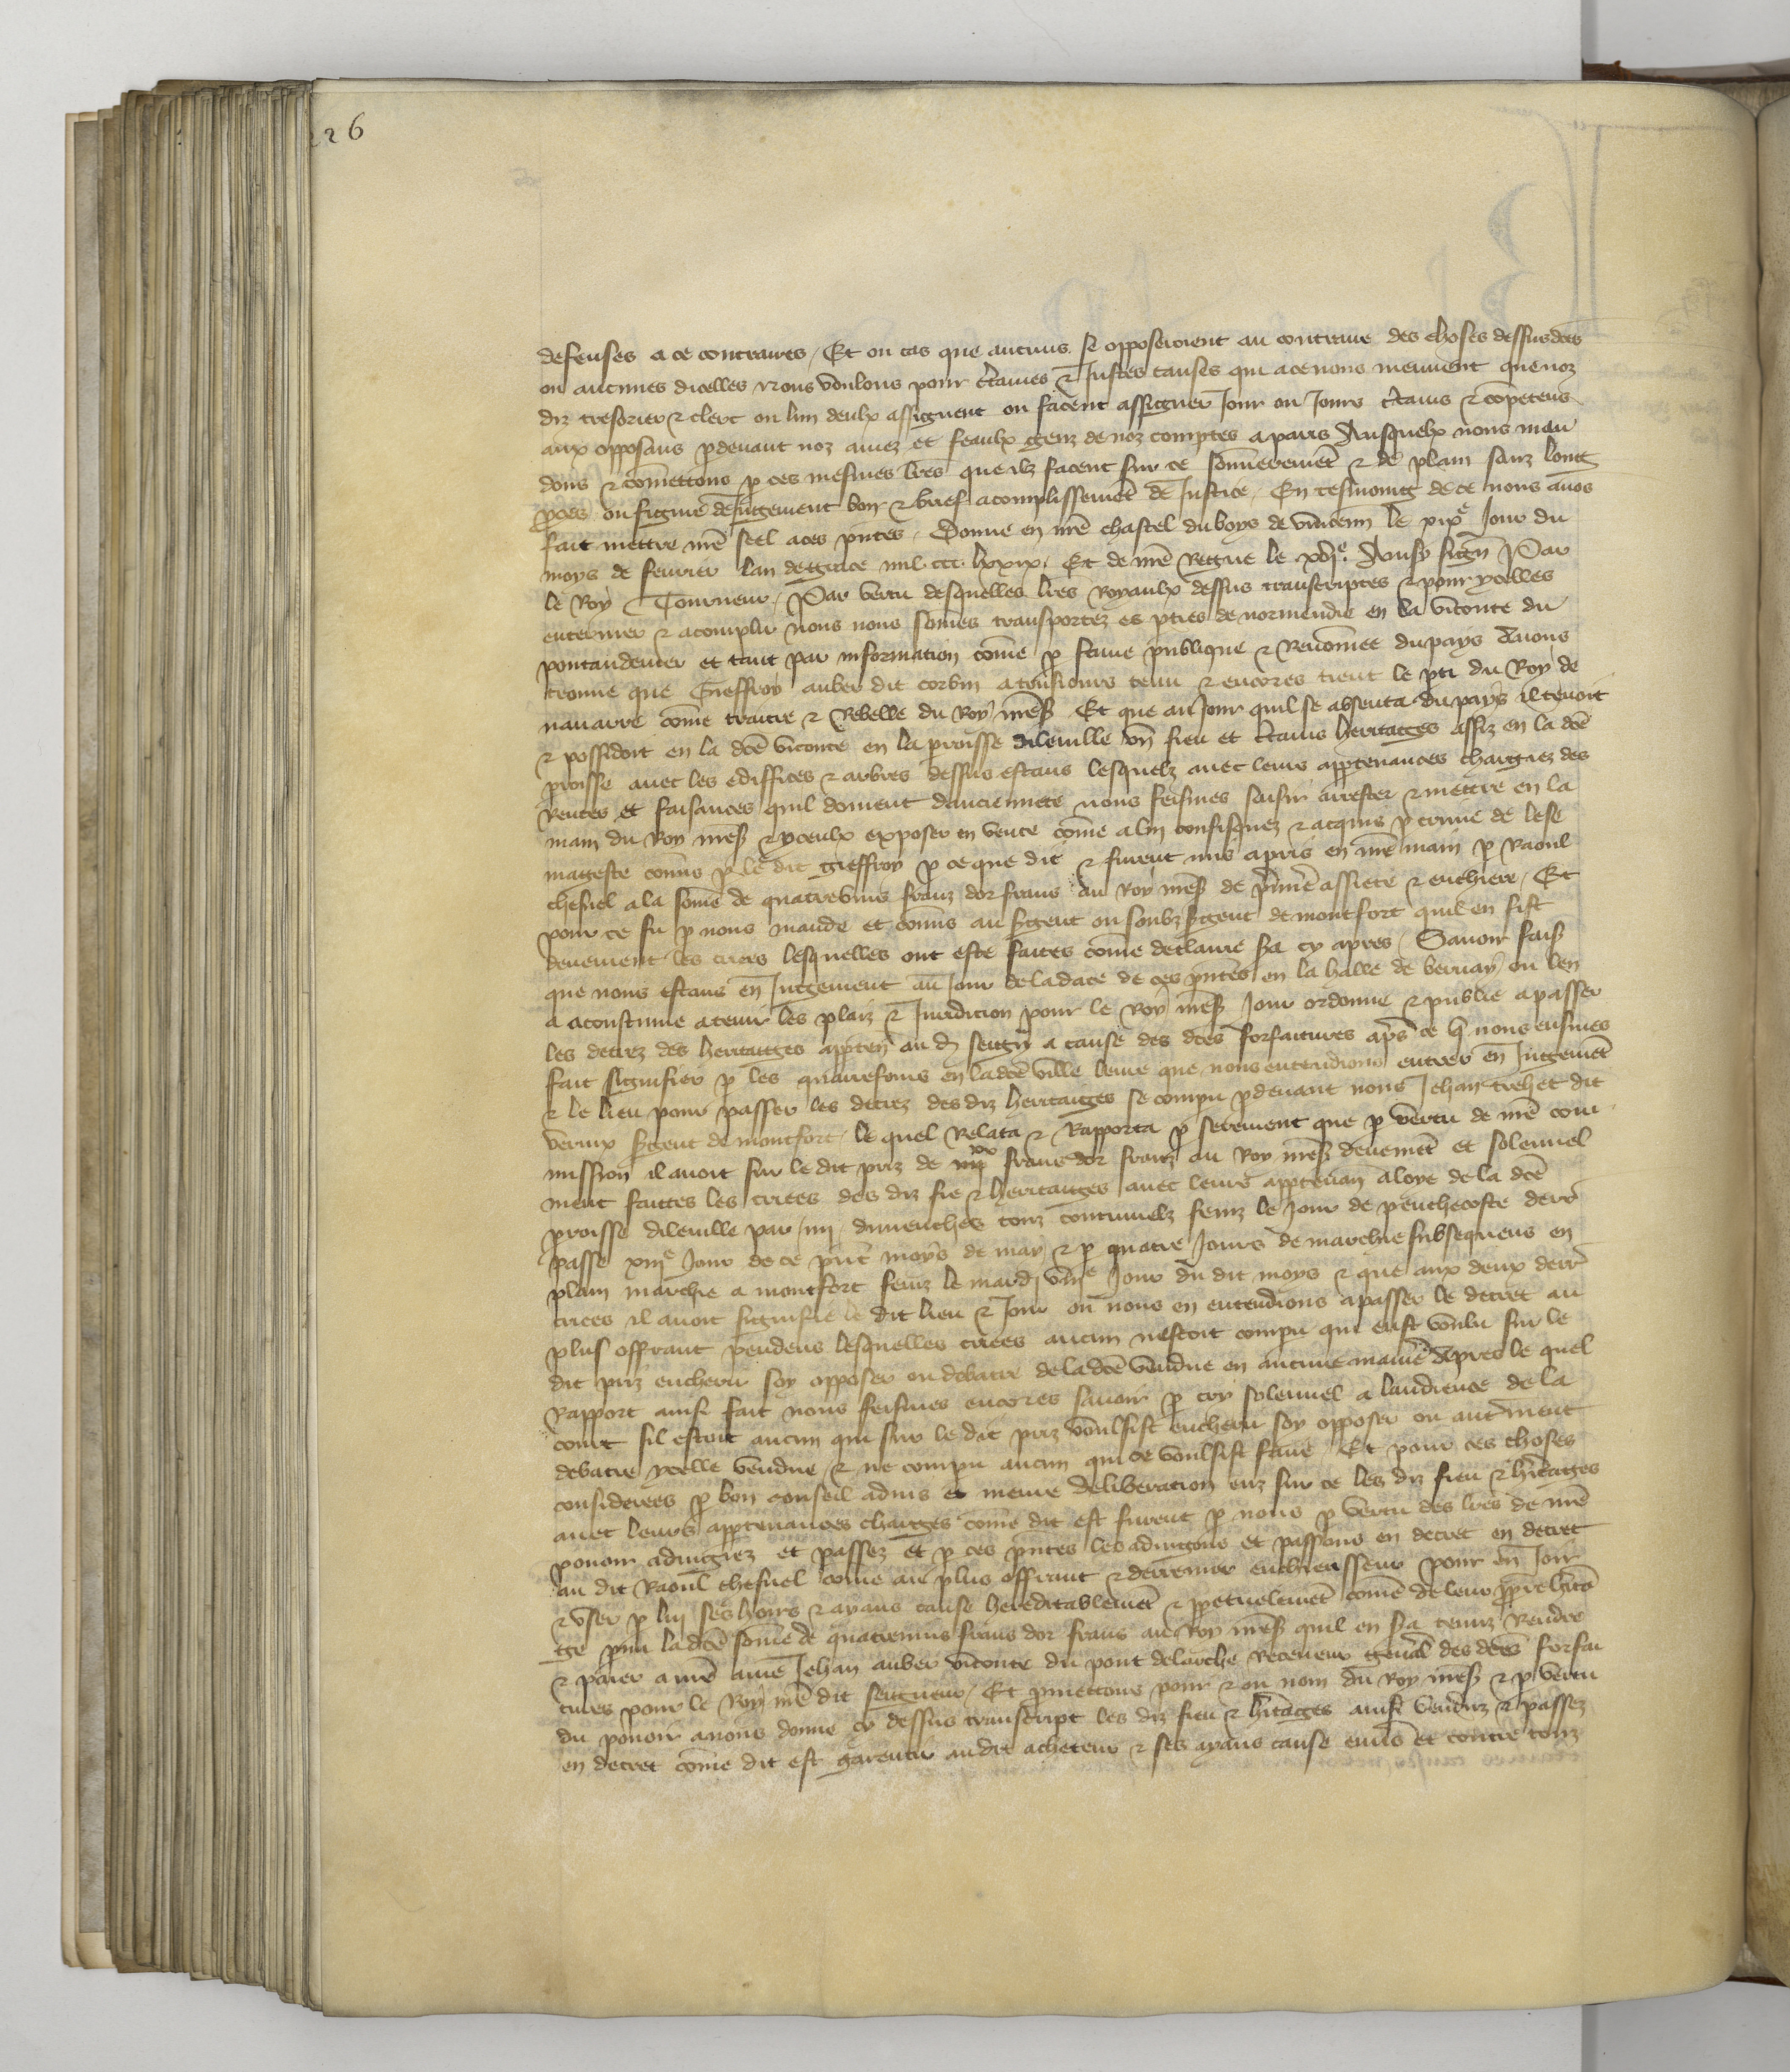 226
defenses a ce contraires / Et ou cas que aucuns se opposeroient au contraire des choses dessusdes
ou aucunes dicelles Nous voulons pour ctaines & Justes causes qui a ce nous meuuent que noz
diz tresorier & clerc ou lun deulx assignent ou facent assigner Jour ou Jours ctains & competens
aux opposans pdeuant noz amez et feaulx genz de noz comptes a paris Ausquelx nous man
dons & comettons p ces mesmes lres que ilz facent sur ce sommeremet & de plain sanz long
proces ou figure de Jugement bon & brief acomplissemet de Justice / En tesmoing de ce nous auos
fait mettre nre seel a ces pntes / Donne en nre chastel du boys de vincenn le xixe Jour du
moys de feurier lan de grace mil ccc lxxix / Et de nre Regne le xvje Ainsy signe Par
le Roy Tourneur / Par vertu desquelles lres Royaulx dessus transcriptes & pour ycelles
enteriner & acomplir nous nous somes transportez es pties de normendie en la viconte du
pontaudemer et tant par informacion come p fame publique & Renomee du pays Auons
trouue que Gieffroy auber dit corbin a tousiours tenu & encores tient le pti du Roy de
nauarre come traitre & Rebelle du Roy nres Et que au Jour quil se absenta du pays il tenoit
& possidoit en la dce viconte en la proisse dileuille vn fieu et ctains heritages assiz en la dce
proisse auec les ediffices & arbres dessus estans lesquelz auec leurs apptenances chargiez des
Rentes et faisances quil doiuent danciennete nous feismes saisir arrester & mettre en la
main du Roy nres & yceulx exposer en vente come a luy confisquez & acquis p crime de lese
mageste comis p le dit gieffroy p ce que dit & furent mis a pris en nre main p Raoul
chesnel a la some de quatrevins franz dor frans au Roy nres de pmiere assiete & enchiere / Et
pour ce fu p nous mande et comis au sgent ou soubz sgent de montfort quil en fist
deuement les criees lesquelles ont este faites come declaire sa cy apres / Sauoir fais
que nous estans en Jugement au Jour de la date de ces pntes en la halle de bernay ou len
a acoustume a tenir les plaiz & Juridicion pour le Roy nres Jour ordonne & publie a passer
les decrez des heritages appten au d seign a cause des dces forfaitures aps ce q nous eusmes
fait signifier p les quarrefours en la dce ville leure que nous entendions entrer en Jugemet
& le lieu pour passer les decrez des diz heritaiges se compu pdeuant nous Jehan trehet dit
vernix sgent de montfort / le quel Relata & Rapporta p serement que p vertu de nre com
mission il auoit sur le dit priz de iiijxx frans dor franz au Roy nres deuemet et solennel
ment faittes les criees des diz fie & heritaiges auec leurs apptenan a loye de la dce
proisse dileuille par / iiij / dimenches touz continuelz feniz le Jour de penthecoste derr
passe xiije Jour de ce pnt moys de may & p quatre Jours de marchie subsequens en
plain marchie a montfort feniz le mardj Jour du dit moys & que aux deux derr
criees il auoit signifie le dit lieu & Jour ou nous en entendions a passer le decret au
plus offrant pendens lesquelles criees aucun nestoit compu qui eust voulu sur le
dit priz encherir soy opposer ou debatre de la dce vendue en aucune maniere Apres le quel
Rapport ainsi fait nous feismes encores sauoir p cry solennel a laudience de la
court sil estoit aucun qui sur le dit priz voulsist encherir soy opposer ou autrment
debatre ycelle vendue / & ne compu aucun qui ce voulsist faire / Et pour ces choses
considerees p bon conseil aduis et meure deliberacion euz sur ce les diz fieu & hitages
auec leurs apptenances charges come dit est furent p nous p vertu des lres de nre
pouoir adiugiez et passez et p ces pntes les adiugons et passons en decret en decret
au dit Raoul chesnel come au plus offrant & derrenier enchierisseur pour en Joir
& vser p luj ses hoirs & ayans cause hereditablemet & ppetuelemet come de leur ppre hita
ge pmi la dce some de quatrevins frans dor frans au Roy nres quil en sa tenuz Rendre
& paier a nre ame Jehan auber viconte du pont delarche Receueur gnal des dces forfai
tures pour le Roy nre dit seigneur / Et pmettons pour & ou nom du Roy nres & p vertu
du pouoir a nous donne cy dessus transcript les diz fieu & hitages ainsi venduz & passez
en decret come dit est garentir au dit acheteur & ses ayans cause enuers et contre touz